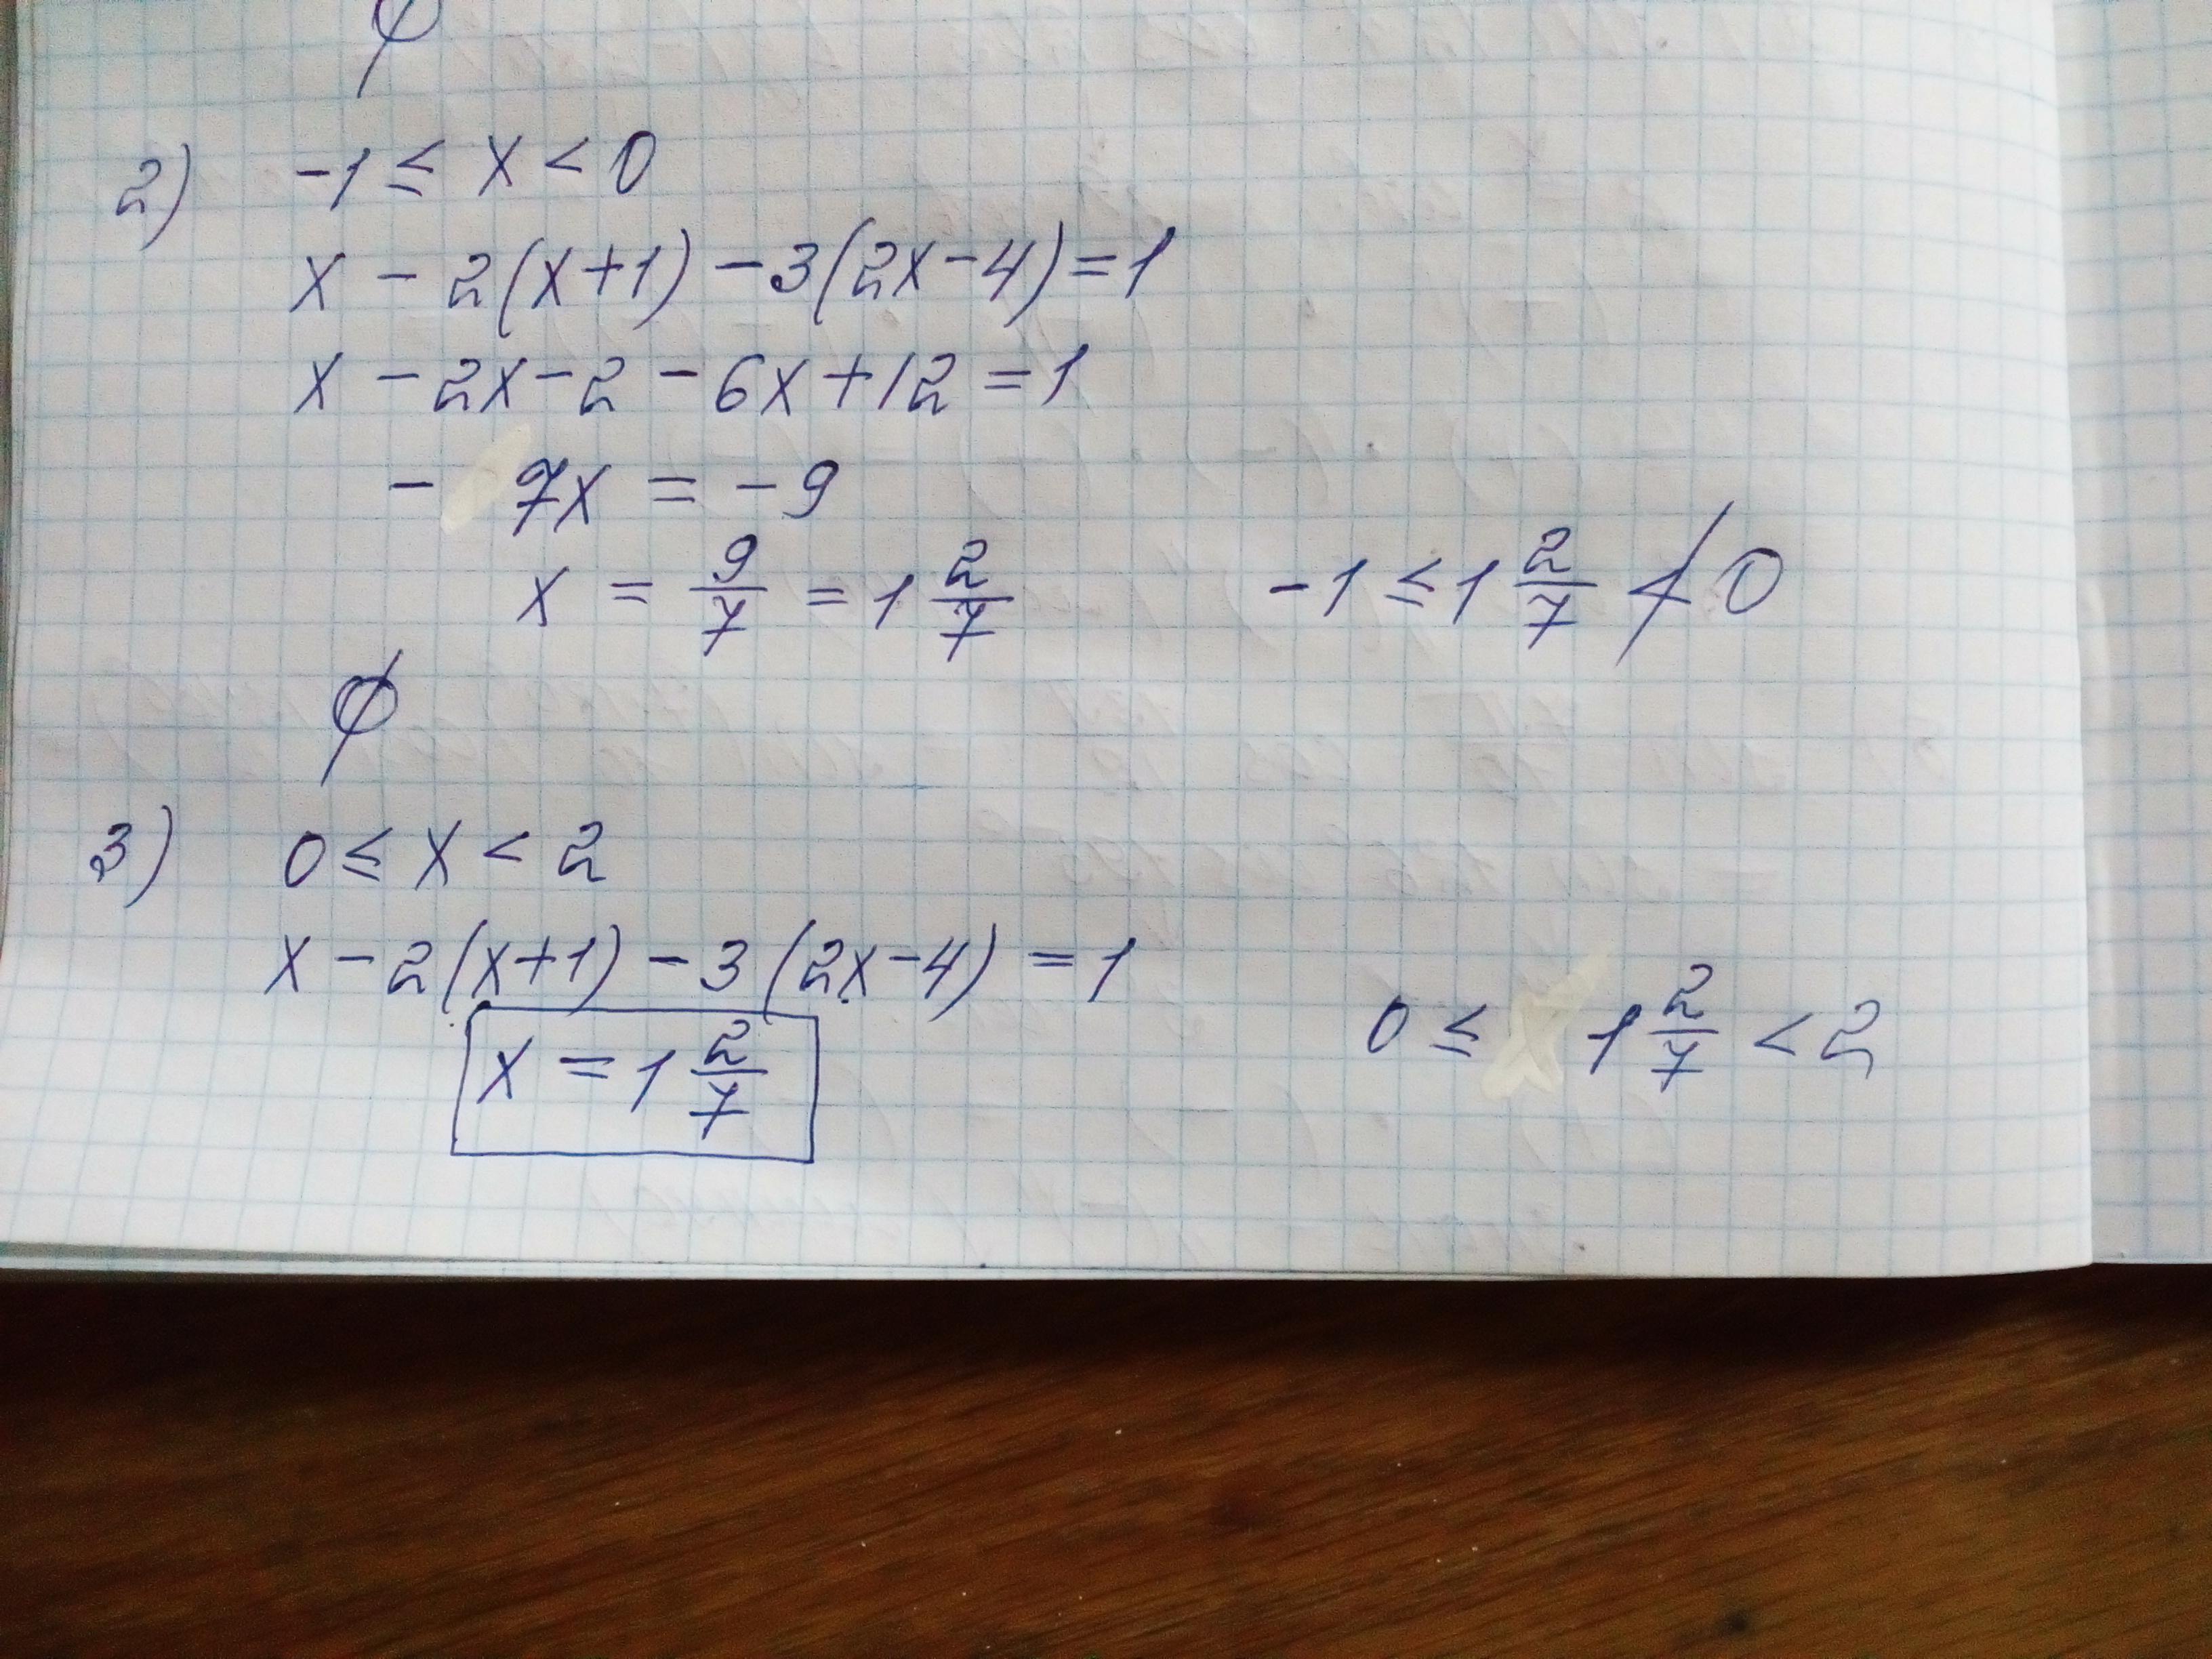 ∅
2) -1 ≤ x < 0
x - 2(x+1) - 3(2x-4) = 1
x - 2x - 2 - 6x + 12 = 1
- 7x = -9
x = 9/7 = 1 2/7    -1 ≤ 1 2/7 ≮ 0
∅
3) 0 ≤ x < 2
x - 2(x+1) - 3(2x-4) = 1
x = 1 2/7    0 ≤ 1 2/7 < 2